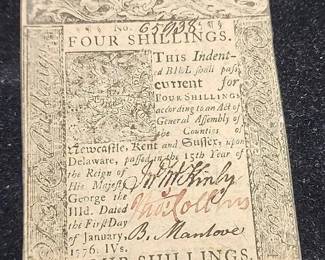 No. 65938
FOUR SHILLINGS.
THIS Indent-
ed BILL shall pass
current for
FOUR SHILLINGS
according to an Act of
General Assembly of
the Counties of
Newcastle, Kent and Sussex, upon
Delaware, passed in the 15th Year of
the Reign of
His Majesty
George the
IIId. Dated
the First Day
of January,
1776. IVs.
Jno McKinly
Thos Collins
B. Manlove
FOUR SHILLINGS.